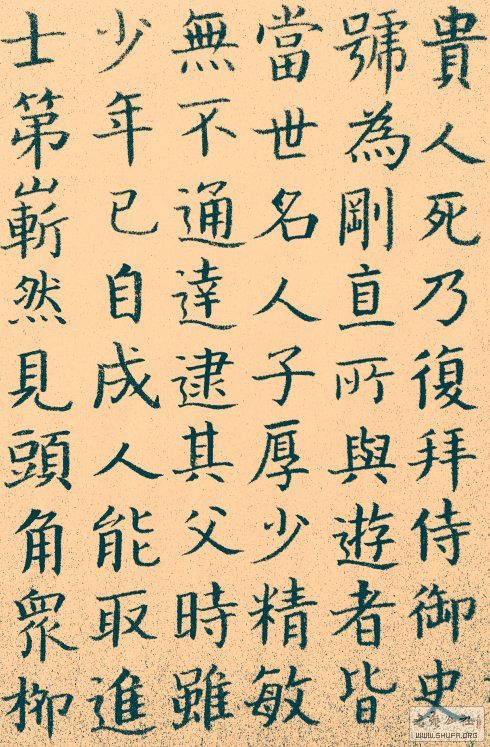 貴人死乃復拜侍御史
號為剛直所與遊者皆
當世名人子厚少精敏
無不通達逮其父時雖
少年已自成人能取進
士第嶄然見頭角眾柳
WWW.SHUFA.ORG